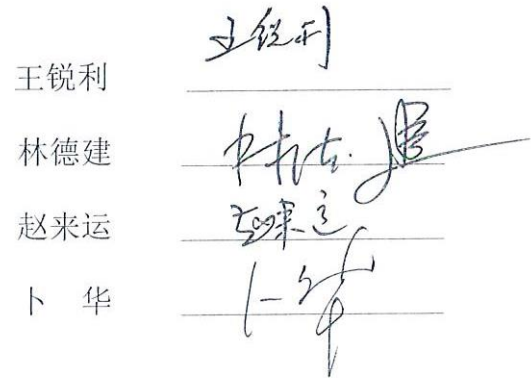 王锐利 王锐利
林德建 林德建
赵来运 赵来运
卜 华 卜华